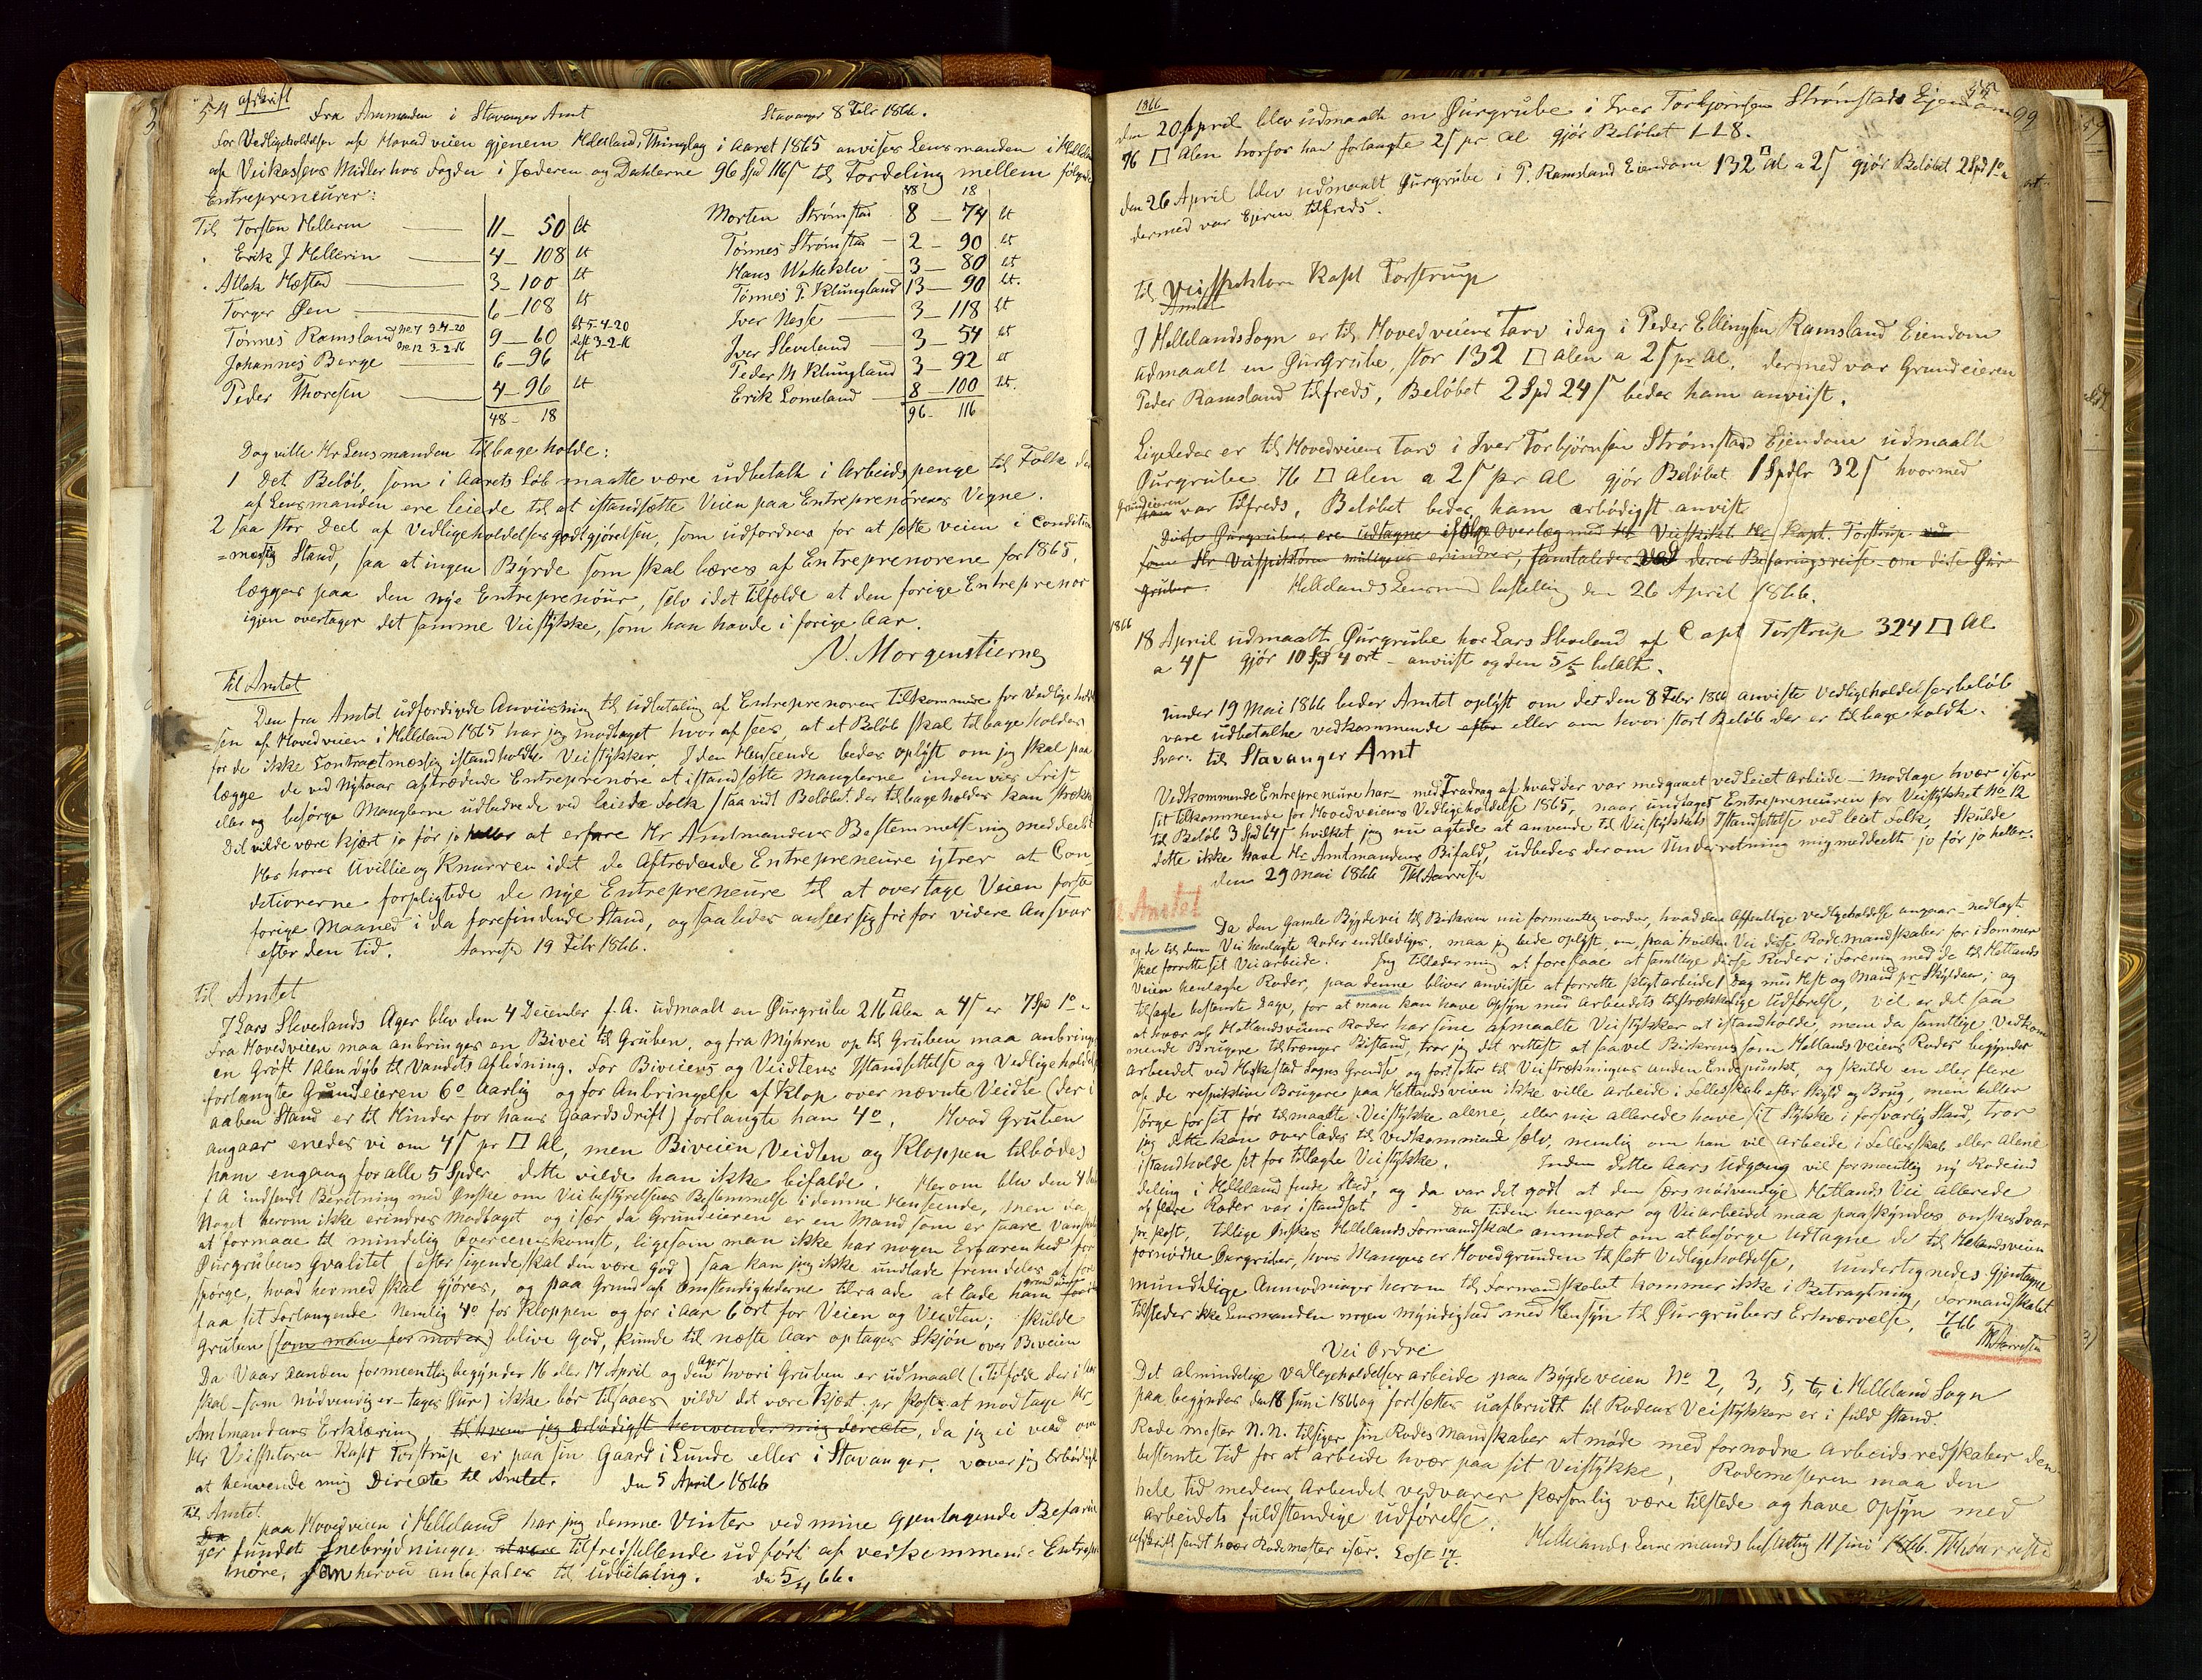 54 afskrift
Fra Amtmanden i Stavanger Amt Stavanger 8 Febr 1866.
For Vedligeholdelsen af Hovedveien gjenem Hellelands Thinglag i Aaret 1865 anvises Lensmanden i Hellel
af Veikassens Midler hos Fogden i Jæderen og Dahlerne 96 Spd 116 ſ til Fordeling mellem følgende
Entrepreneurer:
Til Torsten Hellern 11 - 50 bt
Erik J Hellerin 4 - 108 bt
Atlak Hæstad 3 - 100 bt
Torger Øen 6 - 108 bt
Tønnes Ramsland No 7 3-4-20 No 12 3-2-16 9 - 60 bt 5-4-20 Rest 3-2-16
Johannes Berge 6 - 96 bt
Peder Thoresen 4 - 96 bt
48 - 18
48 18
Morten Strømstad 8 - 74 bt
Tønnes Strømstad 2 - 90 bt
Hans 3 - 80 bt
Tønnes T. Klungland 13 - 90 bt.
Iver Nesse 3 - 118 bt
Iver Sleveland 3 - 54 bt
Peder M Klungland 3 - 92 bt
Erik Lomeland 8 - 100 bt.
96 - 116
Dog ville Hr Lensmanden tilbageholde:
1 Det Beløb, som i Aarets Løb maatte være udbetalt i Arbeidspenge til Folk der
af Lensmanden ere leiede til at istandsætte Veien paa Entreprenörenes Vegne.
2 saa stor Deel af Vedligeholdelsesgodtgjørelsen, som udfordres for at sætte veien i Condition
=mæssig Stand, saa at ingen Byrde som skal bæres af Entreprenorene for 1865,
lægges paa den nye Entreprenöur, selv i det tilfælde at den forige Entreprenör
igjen overtager det samme Veistykke, som han havde i forige Aar.
N. Morgenstierne
Til Amtet
Den fra Amtet udfærdigede Anviisning til udbetaling af Entreprenorens Tilkommende for Vedligehold
=sen af Hovedveien i Helleland 1865 har jeg modtaget hvoraf sees, at et Beløb skal tilbageholdes
for de ikke Contractmæssig istandholdte Veistykker. I den Henseende bedes oplyst om jeg skal paa
lægge de ved Nytaar aftrædende Entreprenöre at istandsætte Manglerne inden vis Frist
eller og besørge Manglerne udbedrede ved leiede Folk, saavidt Beløbet der tilbageholdes kan strække
Det vilde være kjært jo før jo heller at erfare Hr Amtmandens Bestemmelse mig meddeelt
Her hores Uvillie og Knurren idet de Aftrædende Entrepreneure ytrer at Con-
ditionerne forpligtede de nye Entrepreneure til at overtage Veien første
forige Maaned i da forefindende Stand, og saaledes anseer sig fri for videre Ansvar
efter den tid. Aarrestad 19 Febr 1866.
til Amtet
I Lars Slevelands Ager blev den 4 December f. A. udmaalt en Öurgrube 216 □ Alen a 4 ſ er 7 Spd 1 o
Fra Hovedveien maa anbringes en Bivei til Gruben, og fra Myhren op til Gruben maa anbringes
en Grøft 1 Alen dyb til Vandets Afledning. For Biveiens og Veidtens Istandsættelse og Vedligehold
forlangte Grundeieren 6 o Aarlig og for Anbringelse af Klop over nævnte Veidte (der i
aaben Stand er til Hinder for hans Gaardsdrift) forlangte han 4 o. Hvad Gruben
angaar enedes vi om 4 ſ pr □ Al, men Biveien Veidten og Kloppen tilbødes
ham engang for alle 5 Spdr dette vilde han ikke bifalde. Herom blev den 4
f A indsendt Beretning med Ønske om Veibestyrelsens Bestemmelse i denne Henseende, men da
Noget herom ikke erindres Modtaget og især da Grundeieren er en Mand som er svare
at formaae til mindelig overeenskomst, ligesom man ikke har nogen Erfarenhed for
Öurgrubens Qvalitet (efter sigende skal den være god) saa kan jeg ikke undlade fremdeles at fore
spørge, hvad hermed skal gjøres, og paa Grund af Omstændighederne tilraade at lade ham
faa sit Forlangende nemlig 4 o for Kloppen og for i Aar 6 ort for Veien og Veidten; skulde
Gruben (som man formoder) blive god, kunde til næste Aar optages Skjøn over Biveien
Da Vaaraanden formeentlig begynder 16 eller 17 April og den Ager hvori Gruben er udmaalt (Tilfælde der i Aar
skal - som nødvendig er - tages Öur) ikke bør tilsaaes vilde det være kjært pr post at modtage Hr
Amtmandens Erklæring, til hvem jeg ærbødigst henvender mig directe, da jeg ei veed om
Hr Veiinspektören Kapt Torstrup er paa sin Gaard i Lunde eller i Stavanger, vover jeg ærbødigst
at henvende mig Directe til Amtet. Den 5 April 1866
til Amtet
Da paa Hovedveien i Helleland har jeg denne Vinter ved mine gjentagende Befarin
ger fundet Snebrydninger at være tilfredsstillende udført af vedkommende Entrepre
nöre, som herved anbefales til udbetaling. Den 5/4 66.
55
99
1866
den 20 April blev udmaalt en Öurgrube i Iver Torbjørnsen Strømstads Ejendom
76 □ Alen hvorfor han forlangte 2 ſ pr Al gjør Beløbet 1-1-8.
den 26 April blev udmaalt Öurgrube i P. Ramsland Eiendom 132 □ Al a 2 ſ gjør Beløbet 2 Spd 1 o
dermed var Ejeren tilfreds.
til Veiinspektören Kapt Torstrup
Amtet
I Hellelands Sogn er til Hovedveiens Tarv idag i Peder Ellingsen Ramsland Eiendom
udmaalt en Öurgrube, stor 132 □ Alen a 2 ſ pr Al, dermed var Grundeieren
Peder Ramsland tilfreds, Beløbet 2 Spd 24 ſ bedes ham anviist.
Ligeledes er til Hovedveiens Tarv i Iver Torbjørnsen Strømstads Ejendom udmaalt
Öurgrube 76 □ Alen a 2 ſ pr Al gjør Beløbet 1 Spdlr 32 ſ hvormed
Grundeieren var tilfreds, Beløbet bedes ham ærbødigst anvist
Disse Öurgruber ere udtagne ifølge Overlæg med Hr Veiinspekt. Hr Kapt. Torstrup ved
som Hr Veiinspektören milligens erindrer, samtaledes ved deres Befaringsreise om disse Öur-
gruber. Hellelands Lensmd bestilling den 26 April 1866.
1866
18 April udmaalt Öurgrube hos Lars Sleveland af Capt Torstrup 324 □ Al
a 4 ſ gjør 10 Spd 4 ort - anviist og den 5/5 betalt.
under 19 Mai 1866 beder Amtet oplyst om det den 8 Febr 1866 anviste Vedligeholdelsesbeløb
vare udbetalte vedkommende efter eller om hvor stort Beløb der er tilbageholdt.
Svar: til Stavanger Amt
Vedkommende Entrepreneure har med Fradrag af hvad der var medgaaet ved Leiet Arbeide - Modtage hver især
sit tilkommende for Hovedveiens Vedligeholdelse 1865, naar undtages Entrepreneuren for Veistykket No 12
til Beløb 3 Spd 64 ſ hvilket jeg nu agtede at anvende til Veistykkets Istandsættelse ved leiet Folk. Skulde
dette ikke have Hr Amtmandens Bifald, udbedes derom Underretning mig meddeelt jo før jo heller.
den 29 Mai 1866 Th Aarrestad
til Amtet
Da den Gamle Bygdevei til Birkrem nu formentlig vorder, hvad den Offentlige Vedligeholdelse angaar - nedlagt
og de til denne Vei henlagte Roder entlediges, maa jeg bede oplyst, om, paa hvilken Vei disse Rodemandskaber for i Sommer
skal forrette sit Veiarbeide. Jeg tillader mig at foreslaae at samtlige disse Roder i Forening med de til Hetlands
Veien henlagte Roder, paa denne bliver anviiste at forrette pligtarbeide 1 Dag med Hest og Mand pr Skylddaler; og
tilsagte bestemte Dage, for at man kan have Opsyn med Arbeidets tilstrækkelige Udførelse, vel er det saa
at hver af Hetlandsveiens Roder har sine afmaalte Veistykker at istandholde, men da samtlige Vedkom
mende Brugere tiltrænger Bistand, tror jeg det rettest at saavel Birkrems som Hetlands Veiens Roder begynder
Arbeidet ved Heskestad Sogns Grændse og fortsetter til Veistrækningens anden Endepunkt, og skulde en eller flere
af de respektive Brugere paa Hetlandsveien ikke ville arbeide i Fællesskab efter Skyld og Brug, men heller
sørge for sit før tilmaalte Veistykke alene, eller nu allerede have sit Stykke i forsvarlig Stand, tror
jeg dette kan overlades til vedkommende selv, nemlig om han vil arbeide i Fællesskab eller Alene
istandholde sit for tillagte Veistykke. Inden dette Aars Udgang vil formentlig ny Rodeind
deling i Helleland finde Sted, og da var det godt at den særs nødvendige Hetlands Vei allerede
af flere Roder var istandsat. Da tiden hengaar og Veiarbeidet maa paaskyndes onskes Svar
pr post, tillige Ønskes Hellelands Formandskab anmodet om at besørge udtagne de til Hetlandsveien
fornødne Öurgruber, hvis Mangel er Hovedgrunden til slet Vedligeholdelse, undertegnedes Gjentagne
mundtlige Anmodninger herom til Formandskabet kommer ikke i Betragtning, Formandskabet
tilsteder ikke Lensmanden nogen Myndighed med Hensyn til Öurgrubers Erhvervelse. 7/6 66
Th Aarrestad
Vei Ordre
Det almindelige Vedligeholdelsesarbeide paa Bygdeveien No 2, 3, 5, 6, i Helleland Sogn
paa begyndes den 18 Juni 1866 og fortsættes uafbrudt til Rodens Veistykker er i fuld stand.
Rodemester N.N. tilsiger sin Rodes Mandskaber at møde med fornødne Arbeidsredskaber den
bestemte Tid for at arbeide hver paa sit Veistykke, Rodemesteren maa den
hele tid medens Arbeidet vedvarer personlig være tilstede og have Opsyn med
arbeidets fuldstendige udførelse.
Hellelands Lensmands bestilling 11 Juni 1866. Th Aarrestad
afskrift sendt hver Rodemester især.